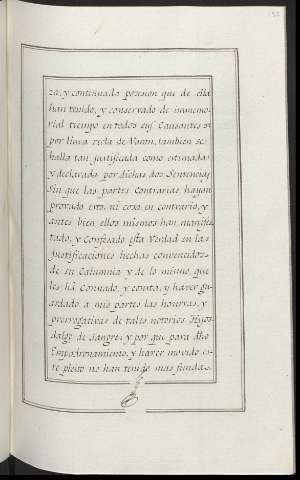 za, y continuada posesion que de ella
han tenido, y conservado de inmemo-
rial tiempo en todos sus Causantes
por linea recta de Varon, tambien se
halla tan justificada como estimada,
y declarada por dichas dos Sentencias,
Sin que las partes Contrarias hayan
provado esto, ni cosa en contrario, y
antes bien ellos mismos han manifes-
tado, y Confesado esta Verdad en las
Justificaciones hechas convencidos
de su Calumnia y de lo mismo que
les há Constado, y consta, y haver gu-
ardado a mis partes las honras, y
prerrogativas de tales notorios Hijos-
dalgo de Sangre; y por que para dho
Empadronamiento, y haver movido es-
te pleito no han tenido mas funda-